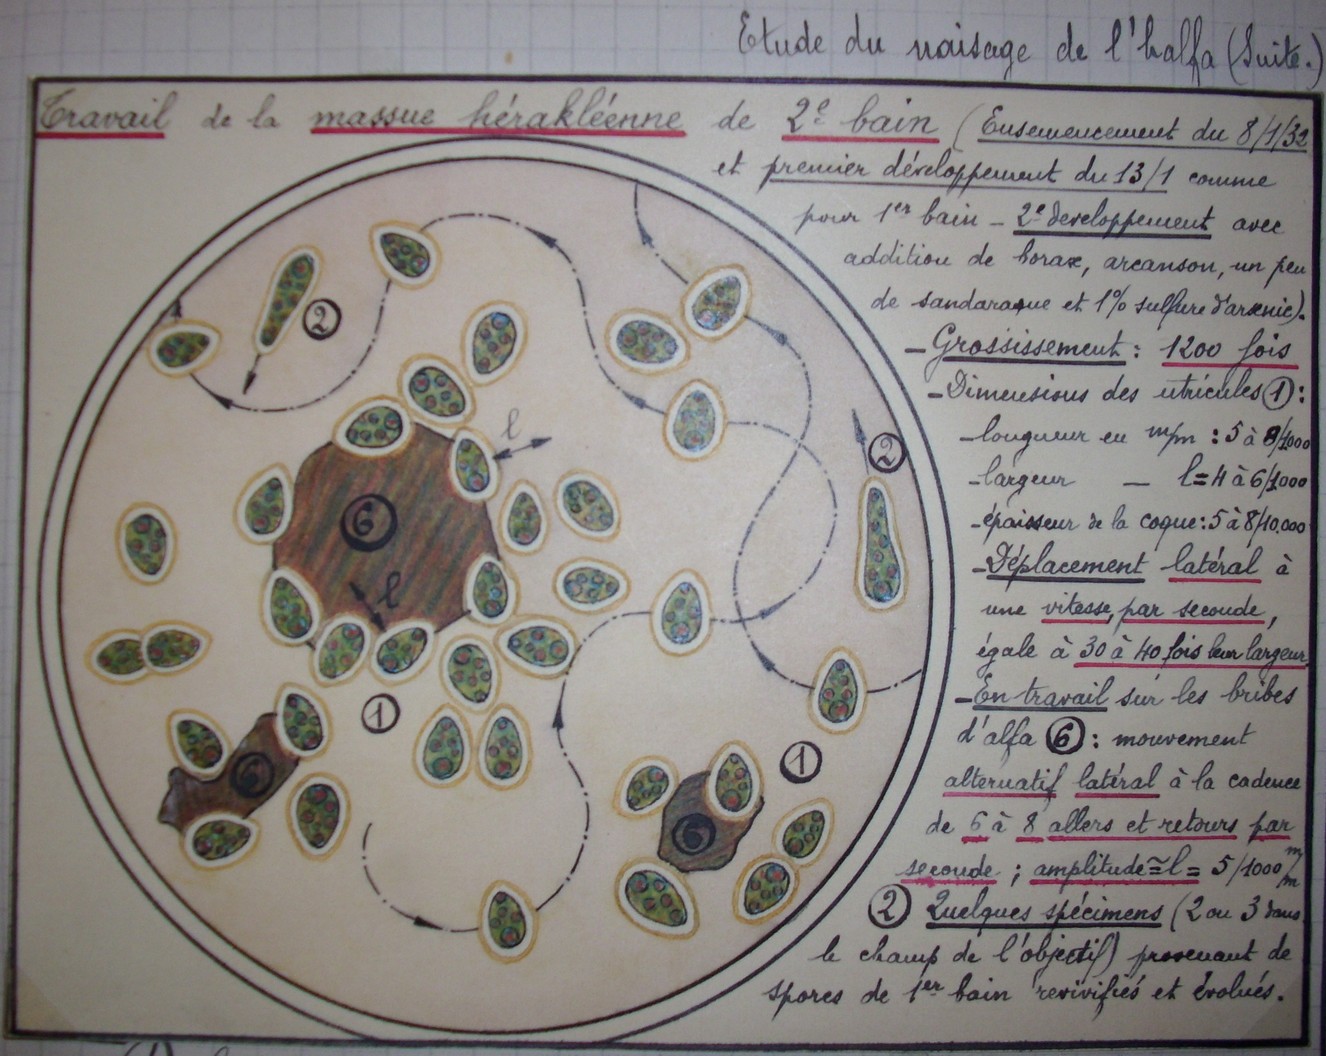 Etude du naisage de l'halfa (Suite.)
Travail de la massue hérakléenne de 2e bain (Ensemencement du 8/1/32
et premier développement du 13/1 comme
pour 1er bain - 2e développement avec
addition de borax, arcanson, un peu
de sandaraque et 1% sulfure d'arsenic).
- Grossissement : 1200 fois
- Dimensions des utricules 1 :
- longueur en m/m : 5 à 8/1000
- largeur — l = 4 à 6/1000
- épaisseur de la coque : 5 à 8/10.000
- Déplacement latéral à
une vitesse, par seconde,
égale à 30 à 40 fois leur largeur
- En travail sur les bribes
d'alfa 6 : mouvement
alternatif latéral à la cadence
de 6 à 8 allers et retours par
seconde ; amplitude ≃ l = 5/1000 m/m
2 Quelques spécimens (2 ou 3 dans
le champ de l'objectif) provenant de
spores de 1er bain revivifiés et évolués.
2
l
2
6
l
1
6
1
6